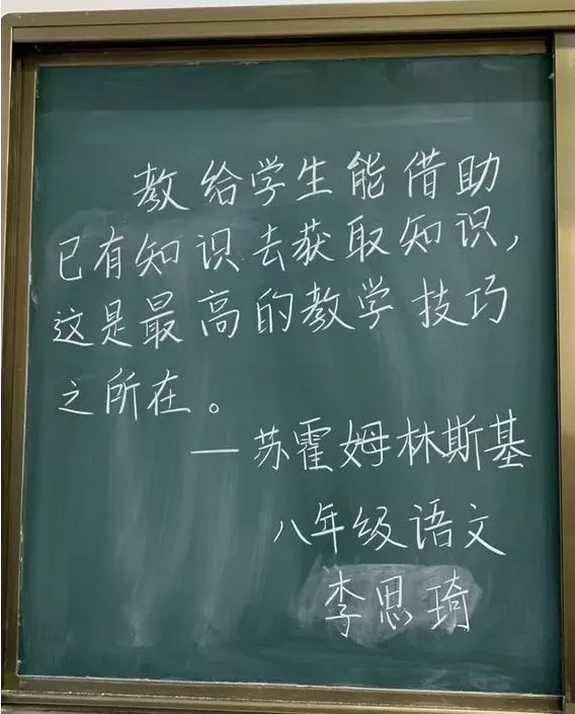 教给学生能借助
已有知识去获取知识,
这是最高的教学技巧
之所在。
—苏霍姆林斯基
八年级语文
李思琦